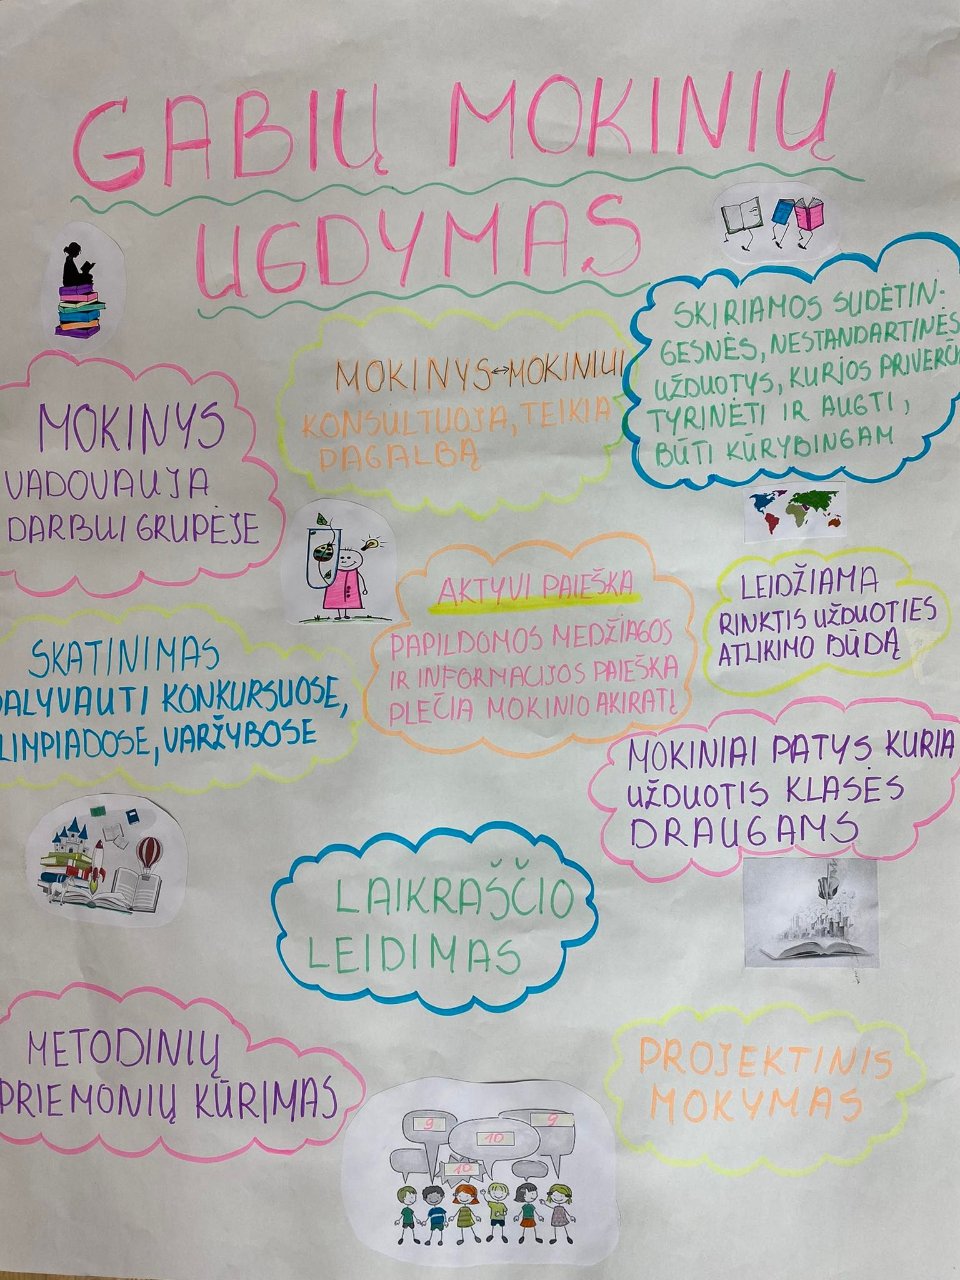 GABIŲ MOKINIŲ
UGDYMAS
MOKINYS↔MOKINIUI
KONSULTUOJA, TEIKIA
PAGALBĄ
SKIRIAMOS SUDĖTIN-
GESNĖS, NESTANDARTINĖS
UŽDUOTYS, KURIOS PRIVERČIA
TYRINĖTI IR AUGTI,
BŪTI KŪRYBINGAM
MOKINYS
VADOVAUJA
DARBUI GRUPĖJE
AKTYVI PAIEŠKA
PAPILDOMOS MEDŽIAGOS
IR INFORMACIJOS PAIEŠKA
PLEČIA MOKINIO AKIRATĮ
LEIDŽIAMA
RINKTIS UŽDUOTIES
ATLIKIMO BŪDĄ
SKATINIMAS
DALYVAUTI KONKURSUOSE,
LIMPIADOSE, VARŽYBOSE
MOKINIAI PATYS KURIA
UŽDUOTIS KLASĖS
DRAUGAMS
LAIKRAŠČIO
LEIDIMAS
METODINIŲ
PRIEMONIŲ KŪRIMAS
PROJEKTINIS
MOKYMAS
9
10
9
10